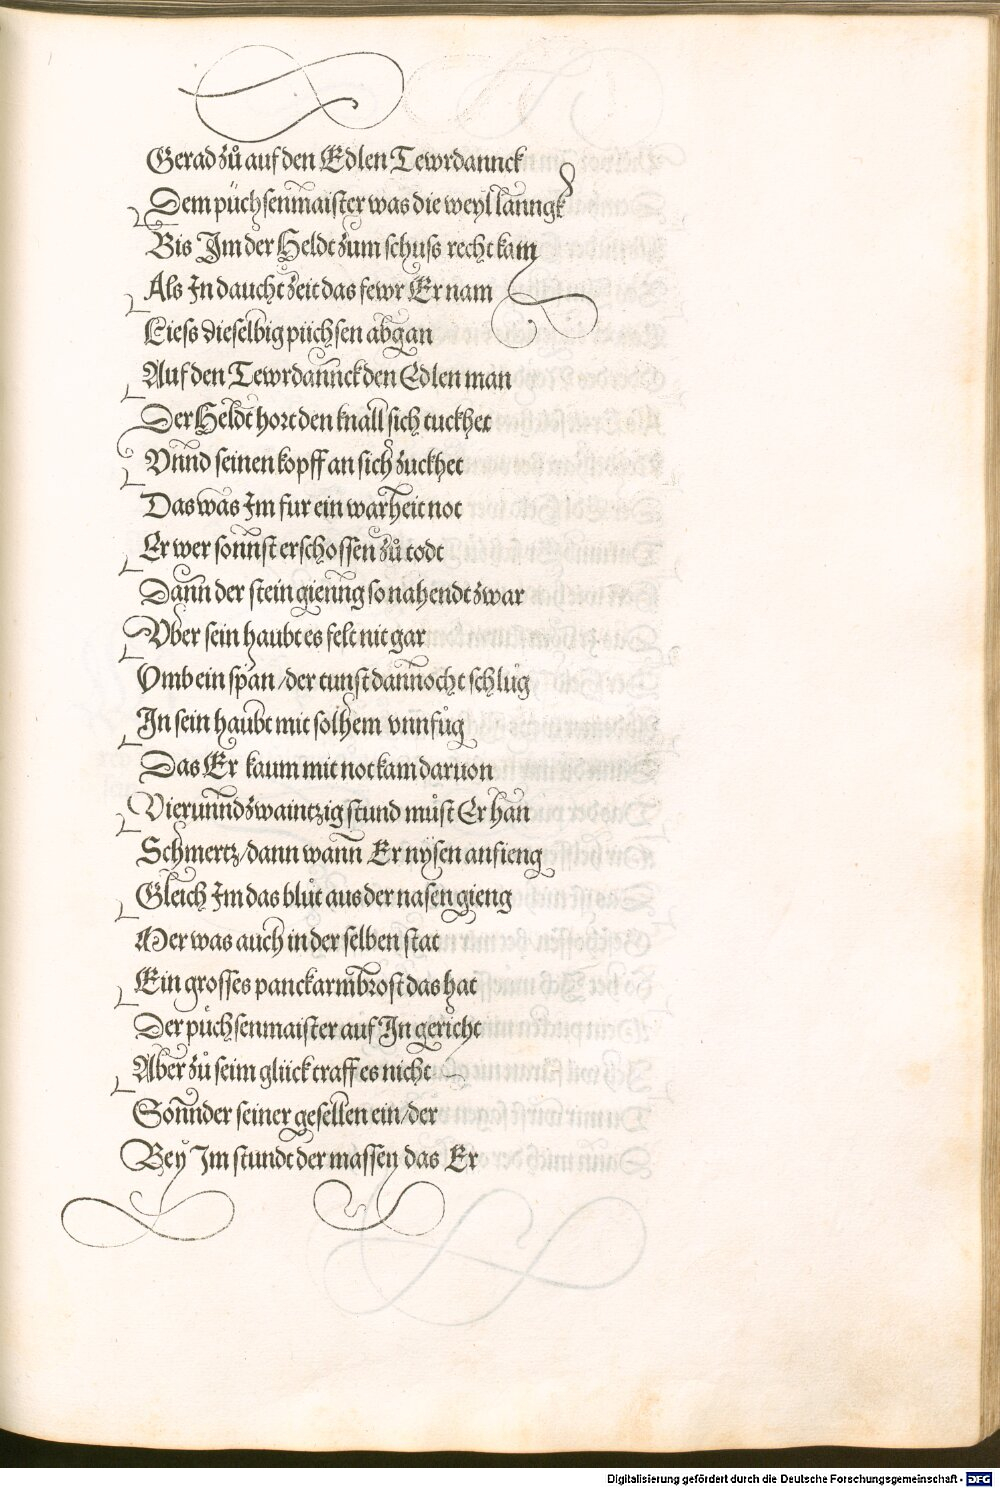 Gerad zů auf den Edlen Tewrdannck
Dem püchsenmaister was die weyl lanngk
Bis Im der Heldt zum schuss recht kam
Als In daucht zeit das fewr Er nam
Liess dieselbig püchsen abgan
Auf den Tewrdannck den Edlen man
Der Heldt hort den knall sich tuckhet
Vnnd seinen kopff an sich zuckhet
Das was Im fur ein warheit not
Er wer sonnst erschossen zů todt
Dann der stein gienng so nahendt zwar
Vber sein haubt es felt nit gar
Vmb ein span / der tunst dannocht schlůg
In sein haubt mit solhem vnnfůg
Das Er kaum mit not kam daruon
Vierunndzwaintzig stund můst Er han
Schmertz / dann wann Er nysen anfieng
Gleich Im das blůt aus der nasen gieng
Mer was auch in der selben stat
Ein grosses panckarmbrost das hat
Der püchsenmaister auf In gericht
Aber zů seim glück traff es nicht
Sonnder seiner gesellen ein / der
Bey Im stundt der massen das Er
Digitalisierung gefördert durch die Deutsche Forschungsgemeinschaft - DFG